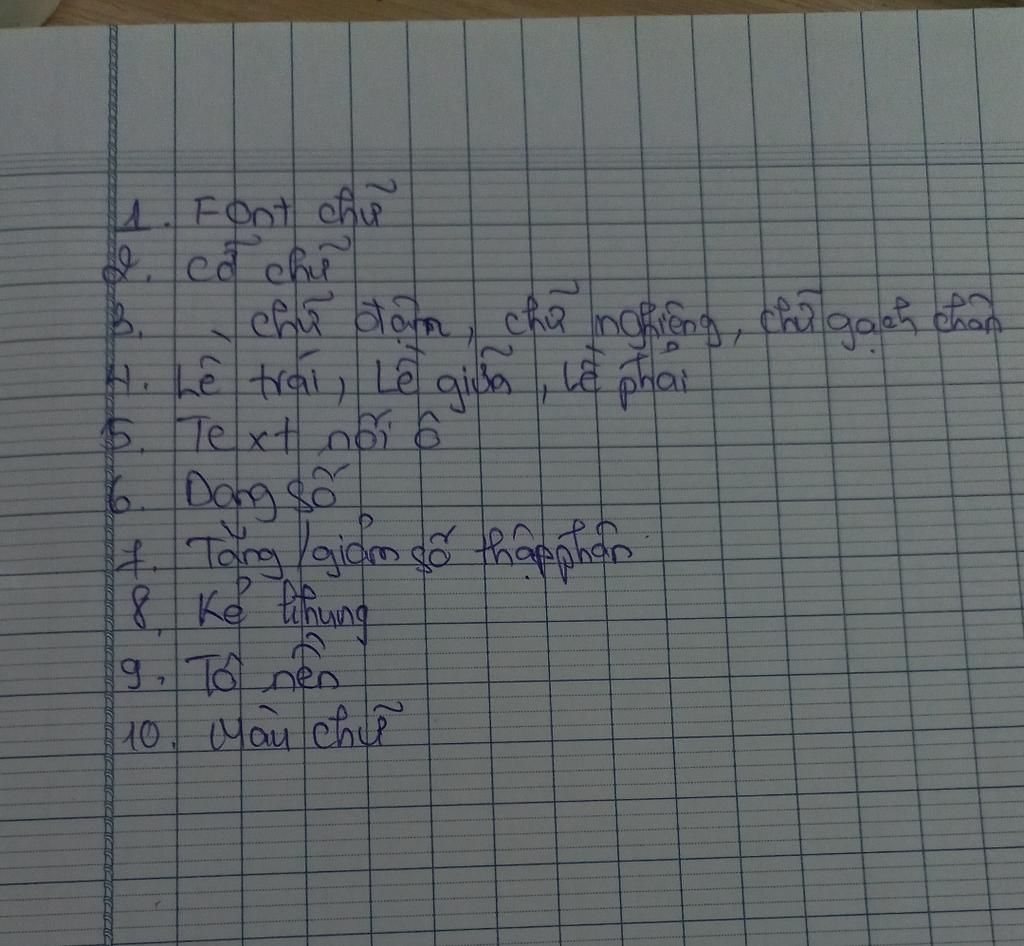 1. Font chữ
2. Cỡ chữ
3. chữ đậm, chữ nghiêng, chữ gạch chân
4. Lề trái, Lề giữa, Lề phải
5. Text nối ô
6. Dạng số
7. Tăng/giảm số thập phân
8. Kẻ khung
9. Tô nền
10. Màu chữ